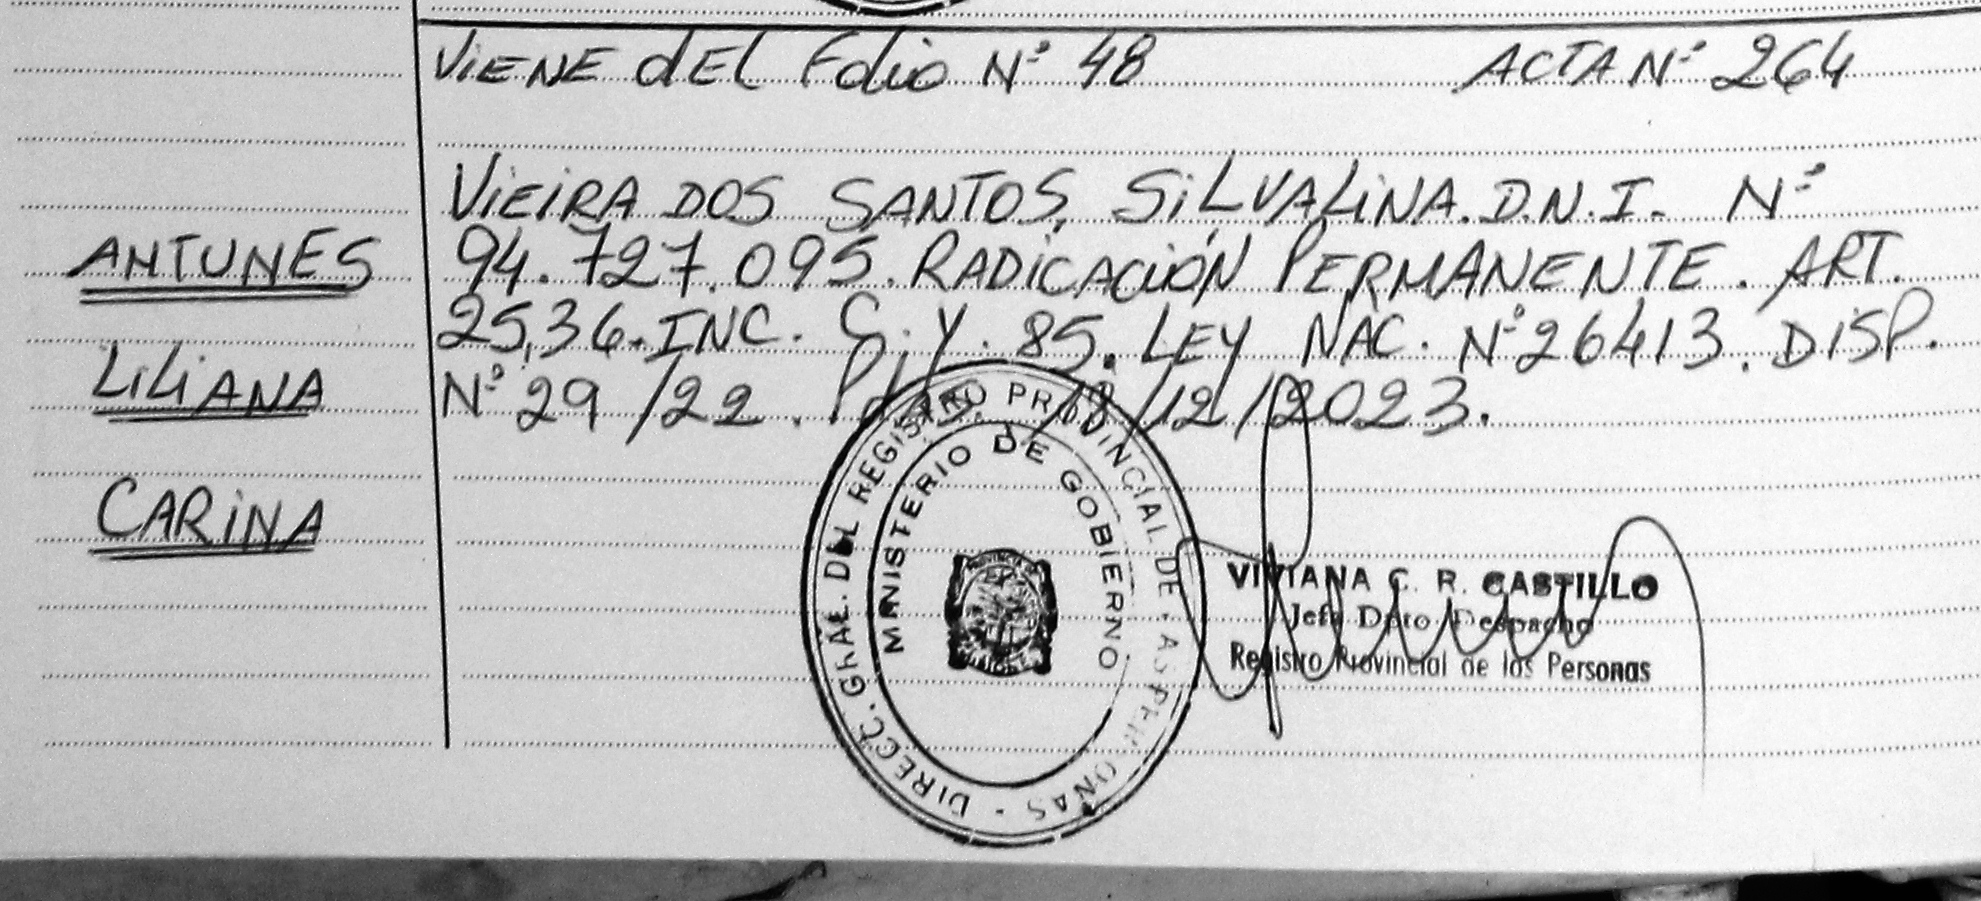 ViENE dEL Folio Nº 48 ACTA Nº 264
ViEiRA DOS SANTOS, SiLVALiNA. D.N.I. Nº
ANTUNES
94.727.095. RADiCACiÓN PERMANENTE. ART.
25,36. INC. C. Y. 85. LEY NAC. Nº 26413. DiSP.
LiLiANA
Nº 29/22. /12/2023.
CARiNA
DIRECC. GRAL. DEL REGISTRO PROVINCIAL DE LAS PERSONAS
MINISTERIO DE GOBIERNO
VIVIANA C. R. CASTILLO
Jefe Dpto Despacho
Registro Provincial de las Personas